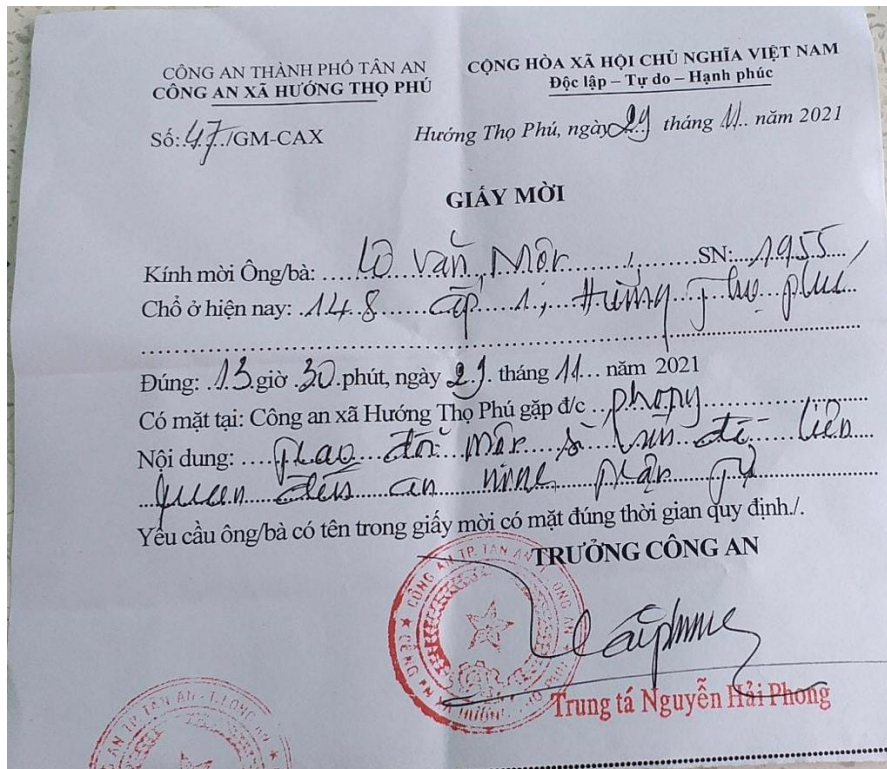 CÔNG AN THÀNH PHỐ TÂN AN
CÔNG AN XÃ HƯỚNG THỌ PHÚ
CỘNG HÒA XÃ HỘI CHỦ NGHĨA VIỆT NAM
Độc lập – Tự do – Hạnh phúc
Số: 47./GM-CAX
Hướng Thọ Phú, ngày 29 tháng 11.. năm 2021
GIẤY MỜI
Kính mời Ông/bà: .... Văn .... SN: 1955
Chổ ở hiện nay: 148 ấp 1, Hướng Thọ Phú
Đúng: 13 giờ 30 phút, ngày 29. tháng 11... năm 2021
Có mặt tại: Công an xã Hướng Thọ Phú gặp đ/c .. phong
Nội dung: .... trao đổi một số vấn đề liên
quan đến an ninh trật tự
Yêu cầu ông/bà có tên trong giấy mời có mặt đúng thời gian quy định./.
TRƯỞNG CÔNG AN
Trung tá Nguyễn Hải Phong